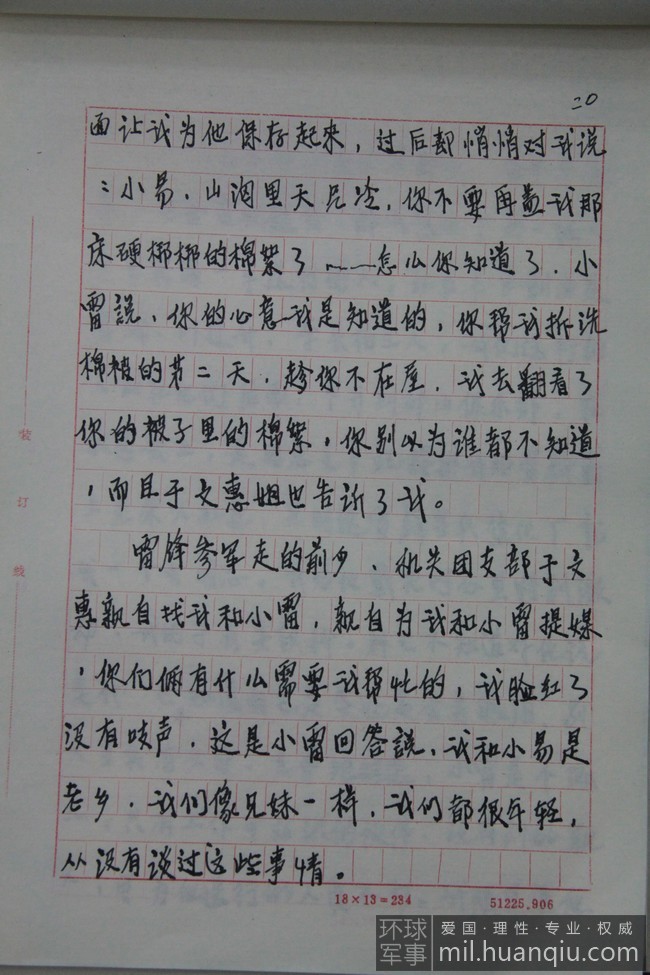 20
面让我为他保存起来，过后却悄悄对我说
：小易，山沟里天气冷，你不要再盖我那
床硬梆梆的棉絮了……怎么你知道了，小
雷説，你的心意我是知道的，你帮我拆洗
棉被的第二天，趁你不在屋，我去翻看了
你的被子里的棉絮，你别以为谁都不知道
，而且于文惠姐也告诉了我。
雷锋参军走的前夕，机关团支部于文
惠親自找我和小雷，親自为我和小雷提媒
，你们俩有什么需要我帮忙的，我脸红了
没有吱声，这是小雷回答説，我和小易是
老乡，我们像兄妹一样，我们都很年轻，
从没有谈过这些事情。
装
订
线
18×13=234
51225.906
环球
军事
爱国·理性·专业·权威
mil.huanqiu.com